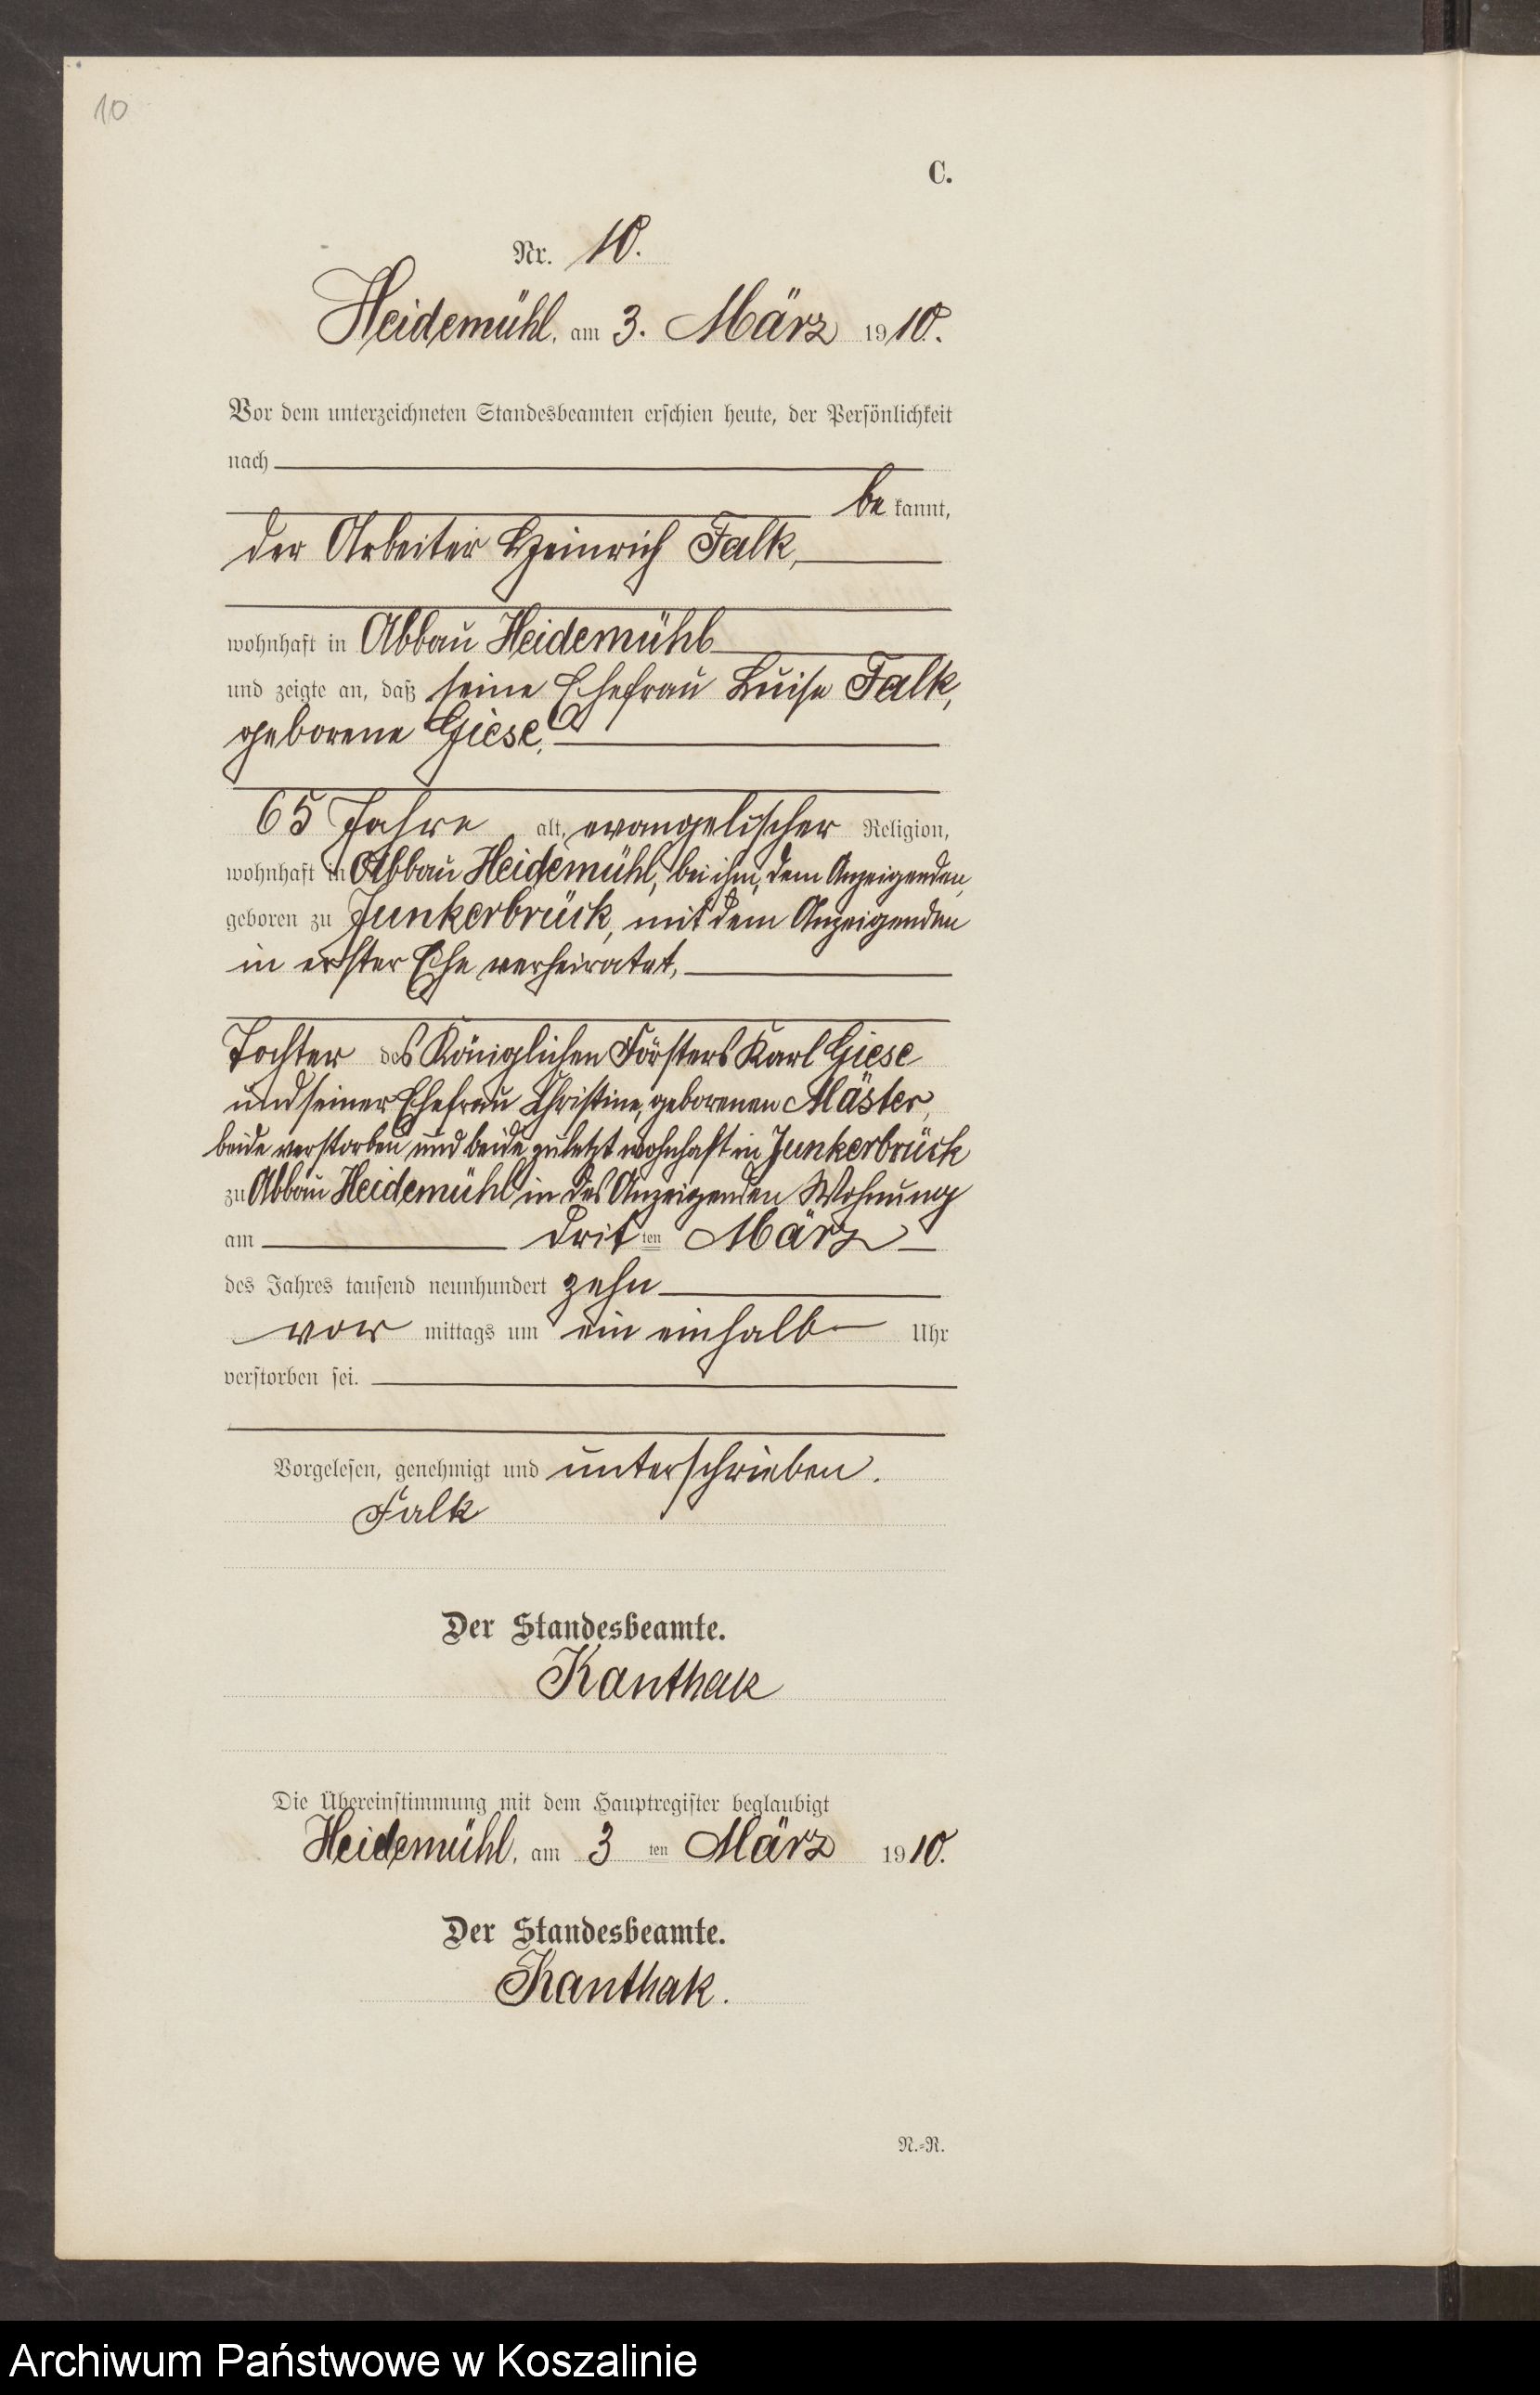 10
C.
Nr. 10.
Heidemühl, am 3. März 1910.
Vor dem unterzeichneten Standesbeamten erschien heute, der Persönlichkeit
nach
be kannt,
der Arbeiter Heinrich Falk,
wohnhaft in Abbau Heidemühl
und zeigte an, daß seine Ehefrau Luise Falk,
geborene Giese,
65 Jahre alt, evangelischer Religion,
wohnhaft in Abbau Heidemühl, bei ihm, dem Anzeigenden,
geboren zu Junkerbrück, mit dem Anzeigenden
in erster Ehe verheiratet,
Tochter des Königlichen Försters Karl Giese
und seiner Ehefrau Christine, geborenen Mäster,
beide verstorben und beide zuletzt wohnhaft in Junkerbrück
zu Abbau Heidemühl in des Anzeigenden Wohnung
am dritten März
des Jahres tausend neunhundert zehn
vor mittags um ein einhalb Uhr
verstorben sei.
Vorgelesen, genehmigt und unterschrieben.
Falk
Der Standesbeamte.
Kanthak
Die Übereinstimmung mit dem Hauptregister beglaubigt
Heidemühl, am 3 ten März 1910.
Der Standesbeamte.
Kanthak.
N.=R.
Archiwum Państwowe w Koszalinie